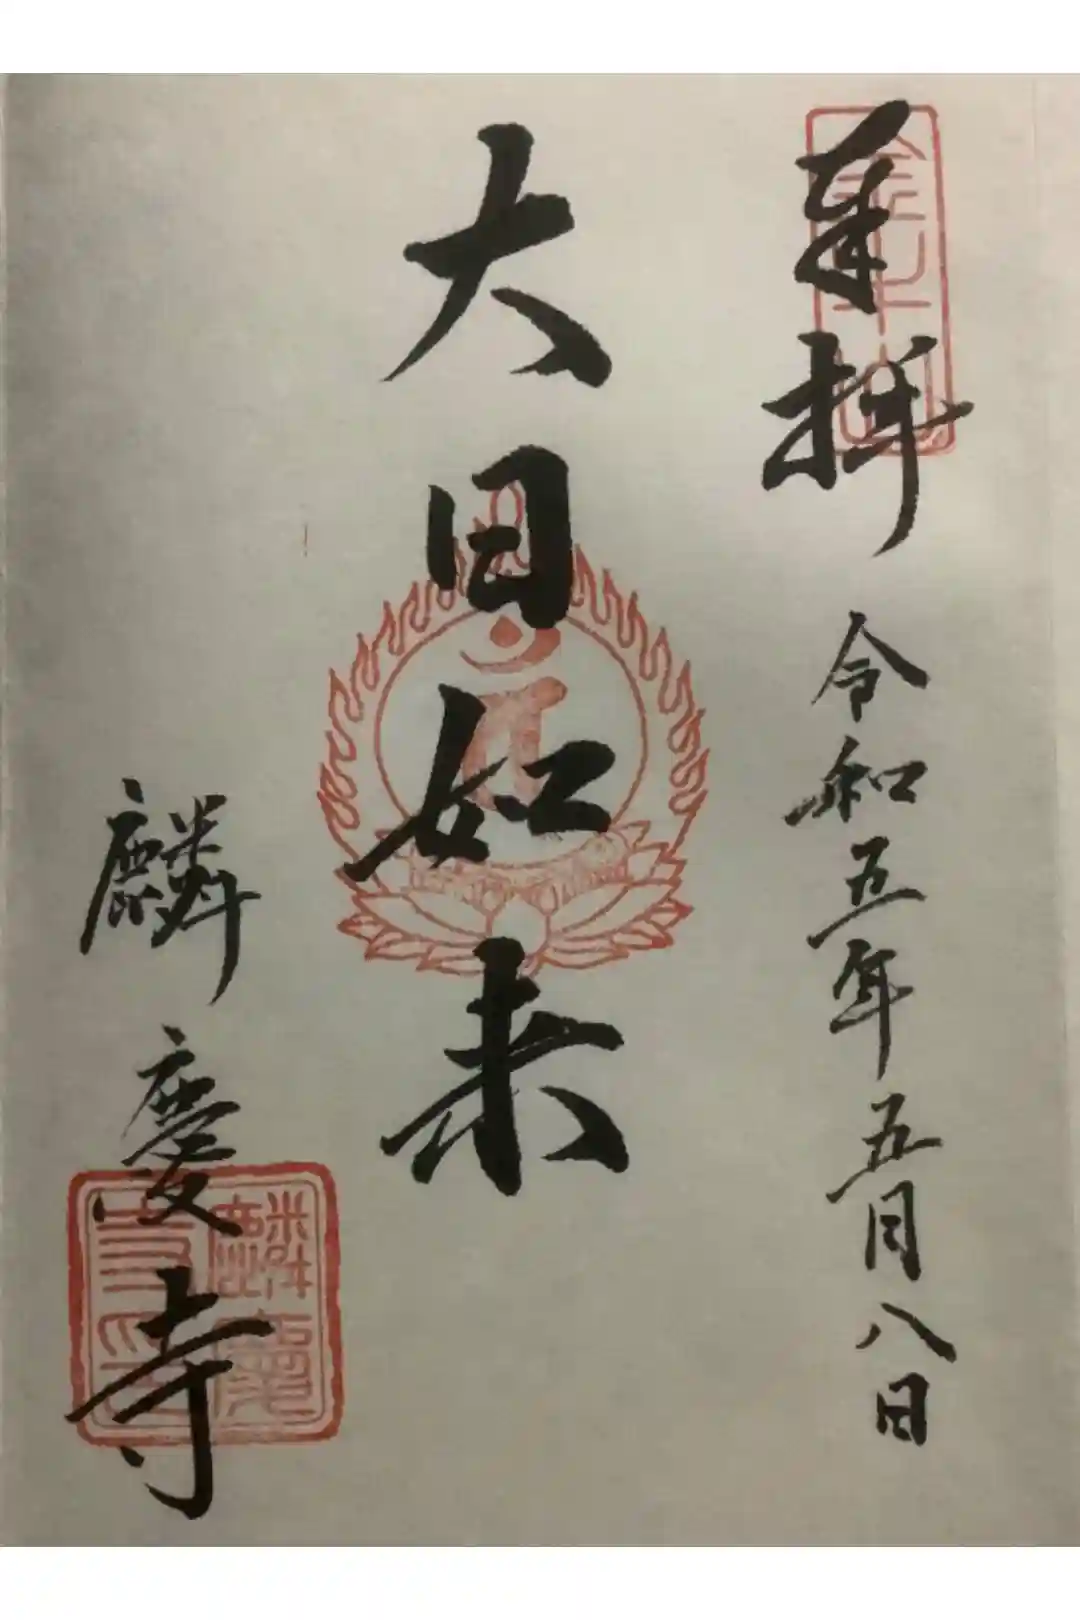 奉拝
令和五年五月八日
大日如来
麟慶寺
麟慶
寺印